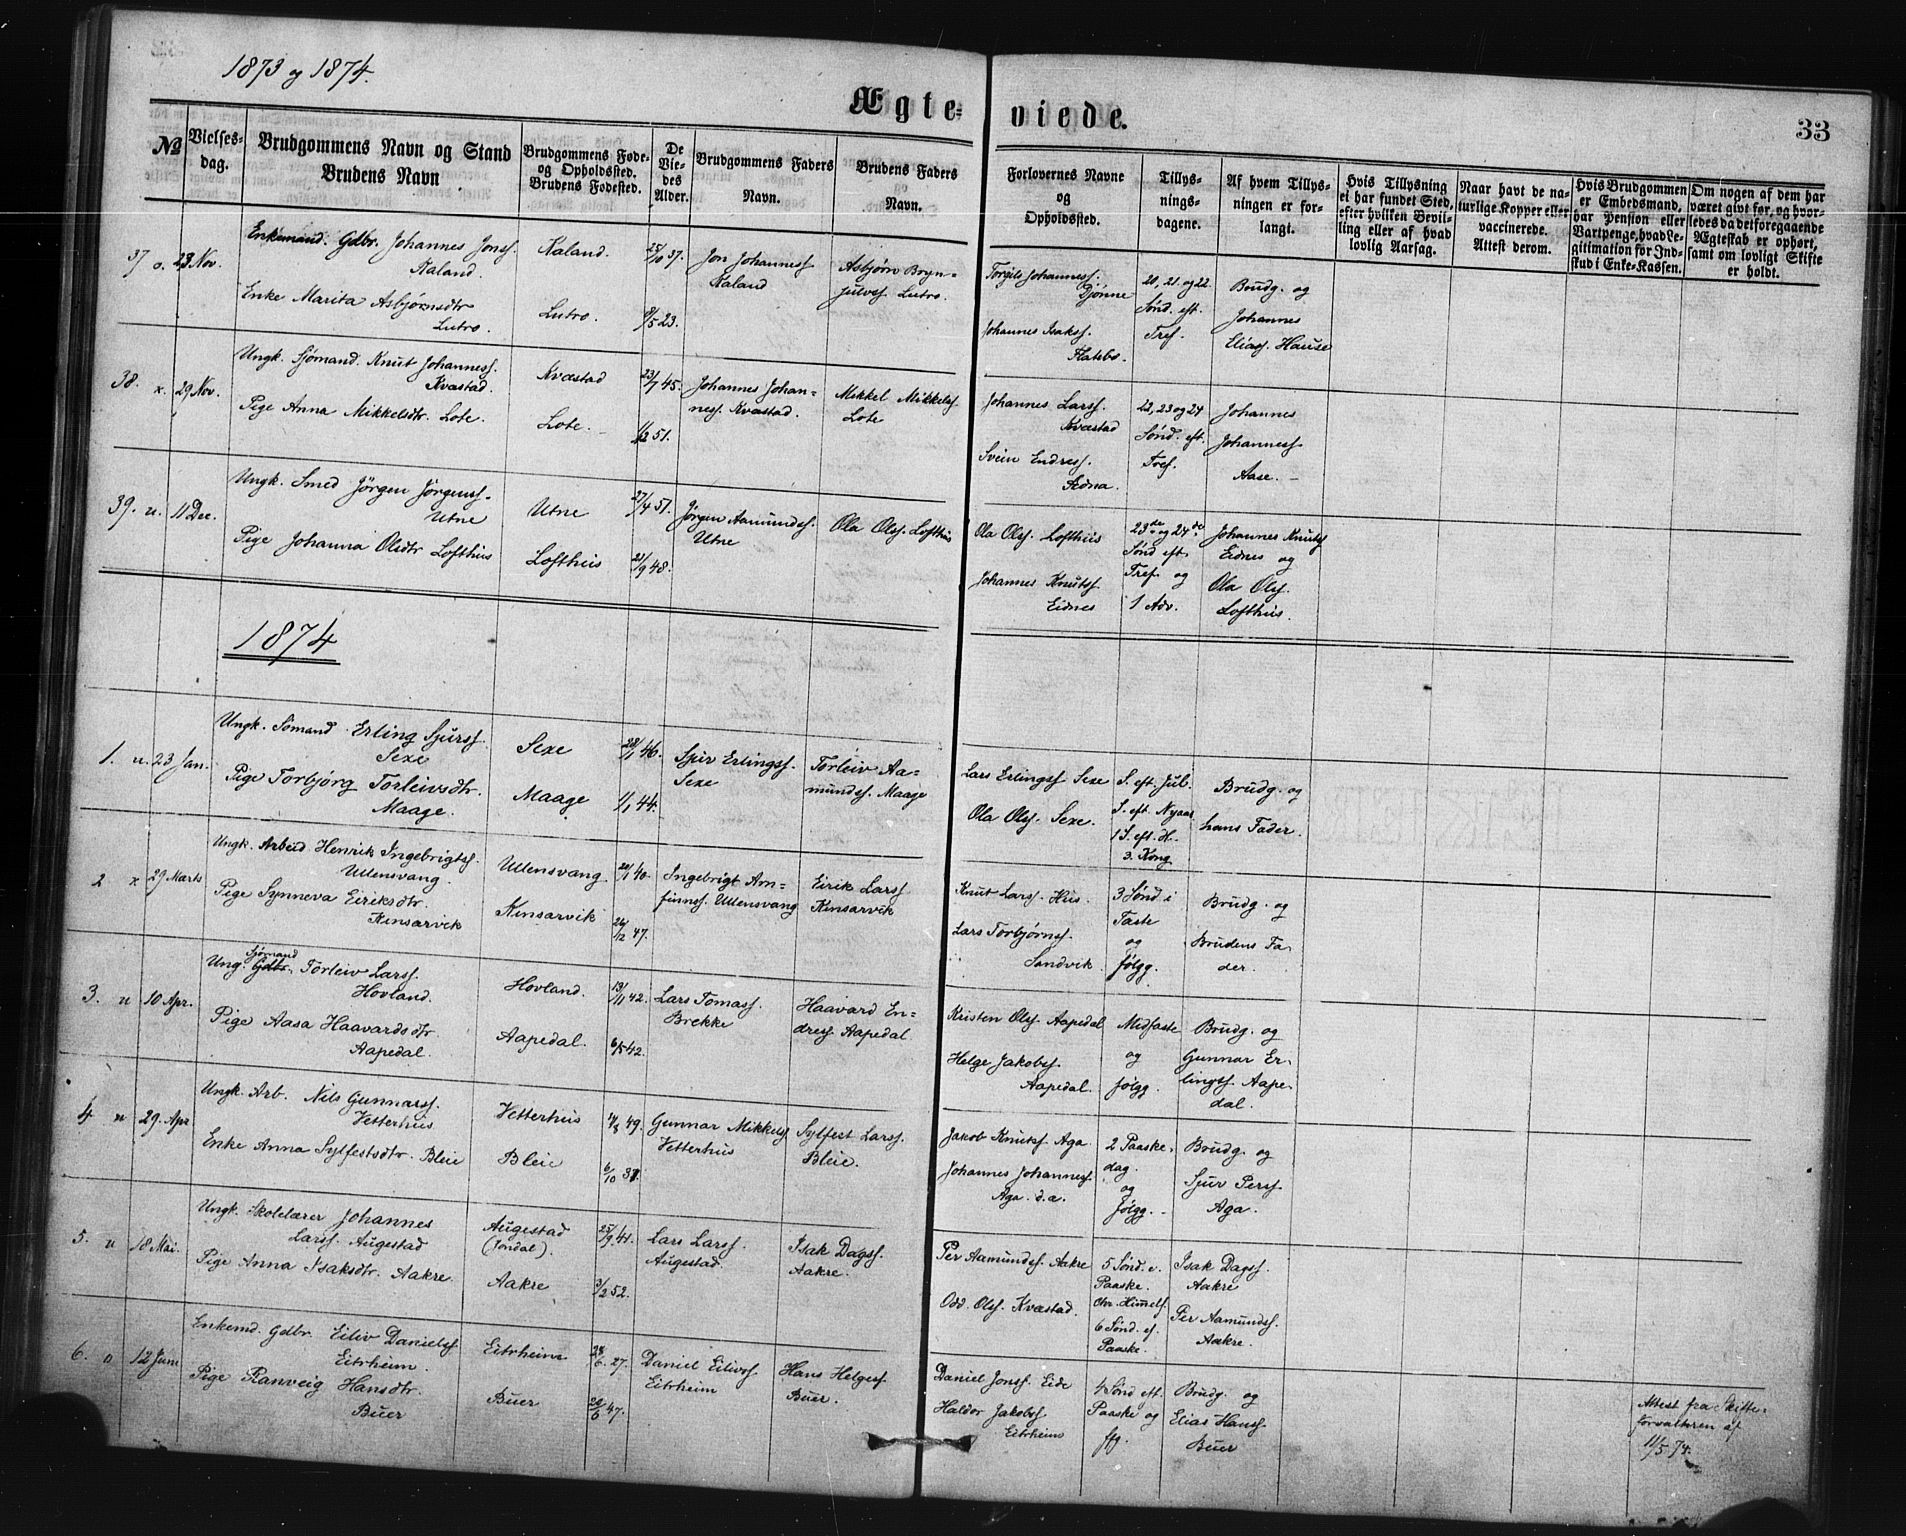 1873 og 1874.
Ægte-viede.
33
No
Vielses-dag.
Brudgommens Navn og Stand
Brudens Navn
Brudgommens Føde-
og Opholdssted.
Brudens Fødested.
De
Vie-
des
Alder.
Brudgommens Faders
Navn.
Brudens Faders
Navn.
Forlovernes Navne
og
Opholdssted.
Tillys-
nings-
dagene.
Af hvem Tillys-
ningen er for-
langt.
Hvis Tillysning
ei har fundet Sted,
efter hvilken Bevil-
ling eller af hvad
lovlig Aarsag.
Naar havt de na-
turlige Kopper eller
vaccinerede.
Attest derom.
Hvis Brudgommen
er Embedsmand,
har Pension eller
Vartpenge, hvad Le-
gitimation for Ind-
skud i Enke-Kassen.
Om nogen af dem har
været givt før, og hvor-
ledes da det foregaaende
Ægteskab er ophørt,
samt om lovligt Skifte
er holdt.
37 o. 23 Nov.
Enkemand. Gdbr. Johannes Jonss.
Raland.
Enke Marita Asbjørnsdtr
Lutro.
Raland.
Lutro.
25/10 37.
8/5 23.
Jon Johanness
Raland
Asbjørn Bryn-
julvss Lutro.
Torgils Johanness.
Djønne
Johannes Isakss.
Flatebø.
20, 21. og 22
Sønd. eft.
Tref.
Brudg. og
Johannes
Eliass. Hause
38. x. 29 Nov.
Ungk. Sjømand. Knut Johanness.
Kvæstad.
Pige Anna Mikkelsdtr. Lote.
Kvæstad
Lote.
23/7 45.
1/2 51.
Johannes Johan-
ness. Kvæstad.
Mikkel Mikkelss.
Lote
Johannes Larss.
Kvæstad
Svein Endress.
Sedna.
22, 23 og 24
Sønd. eft.
Tref.
Johannes
Johanness
Aase.
39. u. 11 Dec.
Ungk. Smed Jørgen Jørgenss.
Utne
Pige Johanna Olsdtr Lofthus
Utne
Lofthus
27/4 51.
21/9 48.
Jørgen Aamundss.
Utne
Ola Olss. Lofthus
Ola Olss. Lofthus
Johannes Knutss.
Eidnes
23de og 24de
Sønd eft.
Tref. og
1 Adv.
Johannes Knutss
Eidnes og
Ola Olss.
Lofthus.
1874
1. u. 23 Jan.
Ungk. Sømand Erling Sjurss.
Sexe
Pige Torbjørg Torleivsdtr.
Maage.
Sexe
Maage
28/1 46.
1/1 44.
Sjur Erlingss.
Sexe
Torleiv Aa-
mundss. Maage
Lars Erlingss Sexe
Ola Olss. Sexe.
S. eft Jul.
S. eft. Nyaar
1 S. eft. H.
3. Kong
Brudg. og
hans Fader.
2 x 29 Marts
Ungk. Arbeid Henrik Ingebrigtss.
Ullensvang.
Pige Synneva Eiriksdtr.
Kinsarvik
Ullensvang
Kinsarvik
20/1 40.
26/12 47.
Ingebrigt Am-
finnss. Ullensvang
Eirik Larss
Kinsarvik
Knut Larss. Hus.
Lars Torbjørnss.
Sandvik.
3 Sønd i
Faste
og
følgg.
Brudg. og
Brudens Fa-
der.
3. u 10 Apr.
Sjømand
Ung. Gdbr. Torleiv Larss.
Hovland.
Pige Aasa Haavardsdtr
Aapedal.
Hovland.
Aapedal.
19/11 42.
6/5 42.
Lars Tomass.
Brekke
Haavard En-
dress Aapedal
Kristen Olss. Aapedal
Helge Jakobss.
Aapedal.
Midfaste
og
følgg.
Brudg. og
Gunnar Er-
lingss Aape-
dal.
4 u 29. Apr
Ungk. Arb. Nils Gunnarss.
Vetterhus
Enke Anna Sylfestsdtr. Bleie
Vetterhus
Bleie
14/8 49.
6/10 38.
Gunnar Mikkelss
Vetterhus
Sylfest Larss.
Bleie.
Jakob Knutss. Aga
Johannes Johanness.
Aga. d.a.
2 Paaske-
dag.
og
følgg.
Brudg. og
Sjur Perss
Aga.
5. u 18 Mai.
Ungk. Skolelærer Johannes
Larss. Augestad
Pige Anna Isaksdtr. Aakre
Augestad
(Jondal).
Aakre
25/9 41.
3/2 52.
Lars Larss.
Augestad.
Isak Dagss.
Aakre.
Per Aamundss. Aakre
Odd. Olss. Kvæstad.
5 Sønd. e.
Paaske.
Chr. Himelf.
6 Sønd. ef.
Paaske.
Isak Dagss.
Aakre
Per Aamundss.
Aakre.
6. o 12 Juni
Enkemd. Gdbr. Eiliv Danielss
Eitrheim.
Pige Ranveig Hansdtr.
Buer
Eitrheim
Buer
24/6 27.
20/6 47.
Daniel Eilivss
Eitrheim
Hans Helgess
Buer.
Daniel Jonss. Eide
Haldor Jakobss
Eitrheim
4 Sønd eft.
Paaske og
ffg.
Brudg. og
Elias Hanss.
Buer
Attest fra Skifte-
forvalteren af
11/5 74.